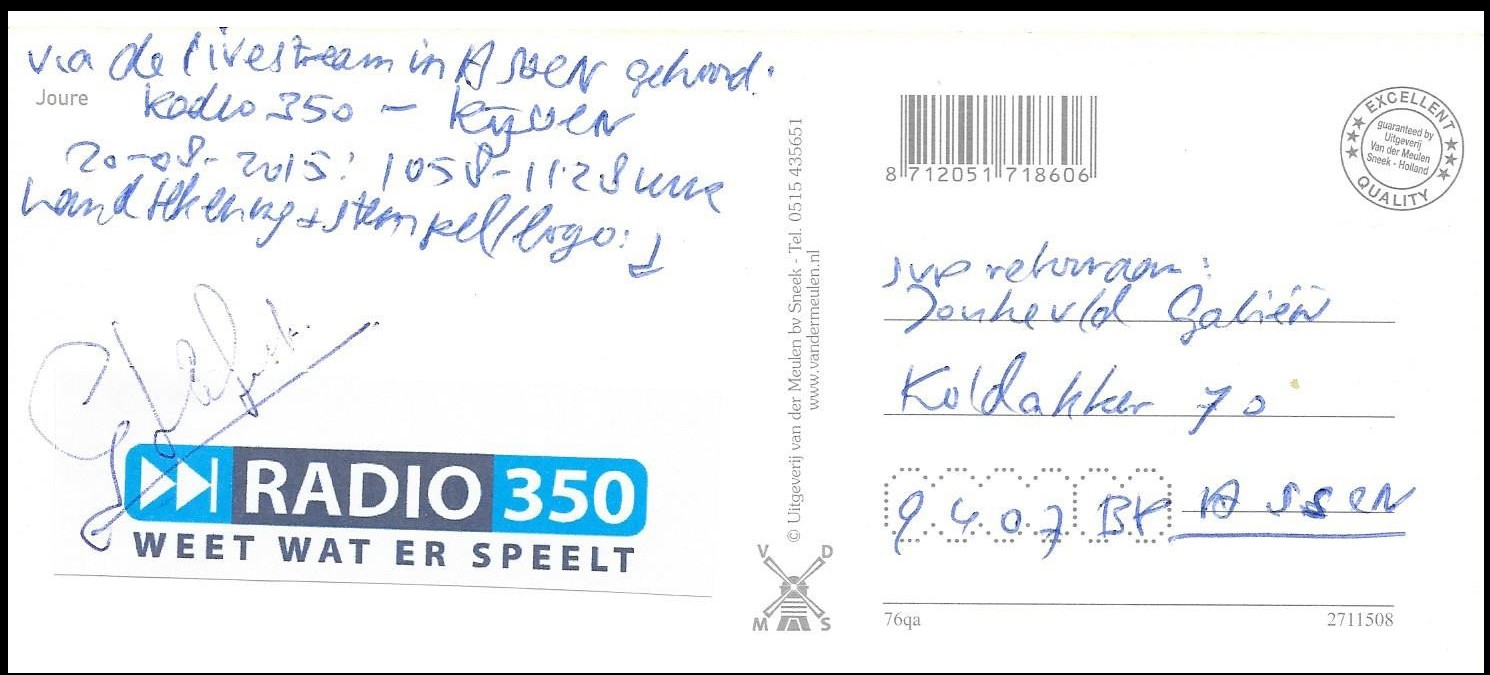 via de livestream in ASSEN gehoord:
Joure
Radio 350 – Rijssen
20-08-2015: 1058-11.28 uur
handtekening + stempel/logo: ↓
RADIO 350
WEET WAT ER SPEELT
© Uitgeverij van der Meulen bv Sneek - Tel. 0515 435651
www.vandermeulen.nl
V D
M S
8 712051 718606
EXCELLENT
guaranteed by
Uitgeverij
Van der Meulen
Sneek - Holland
QUALITY
svp retour aan:
Koldakker 70
9407 BK ASSEN
76qa
2711508